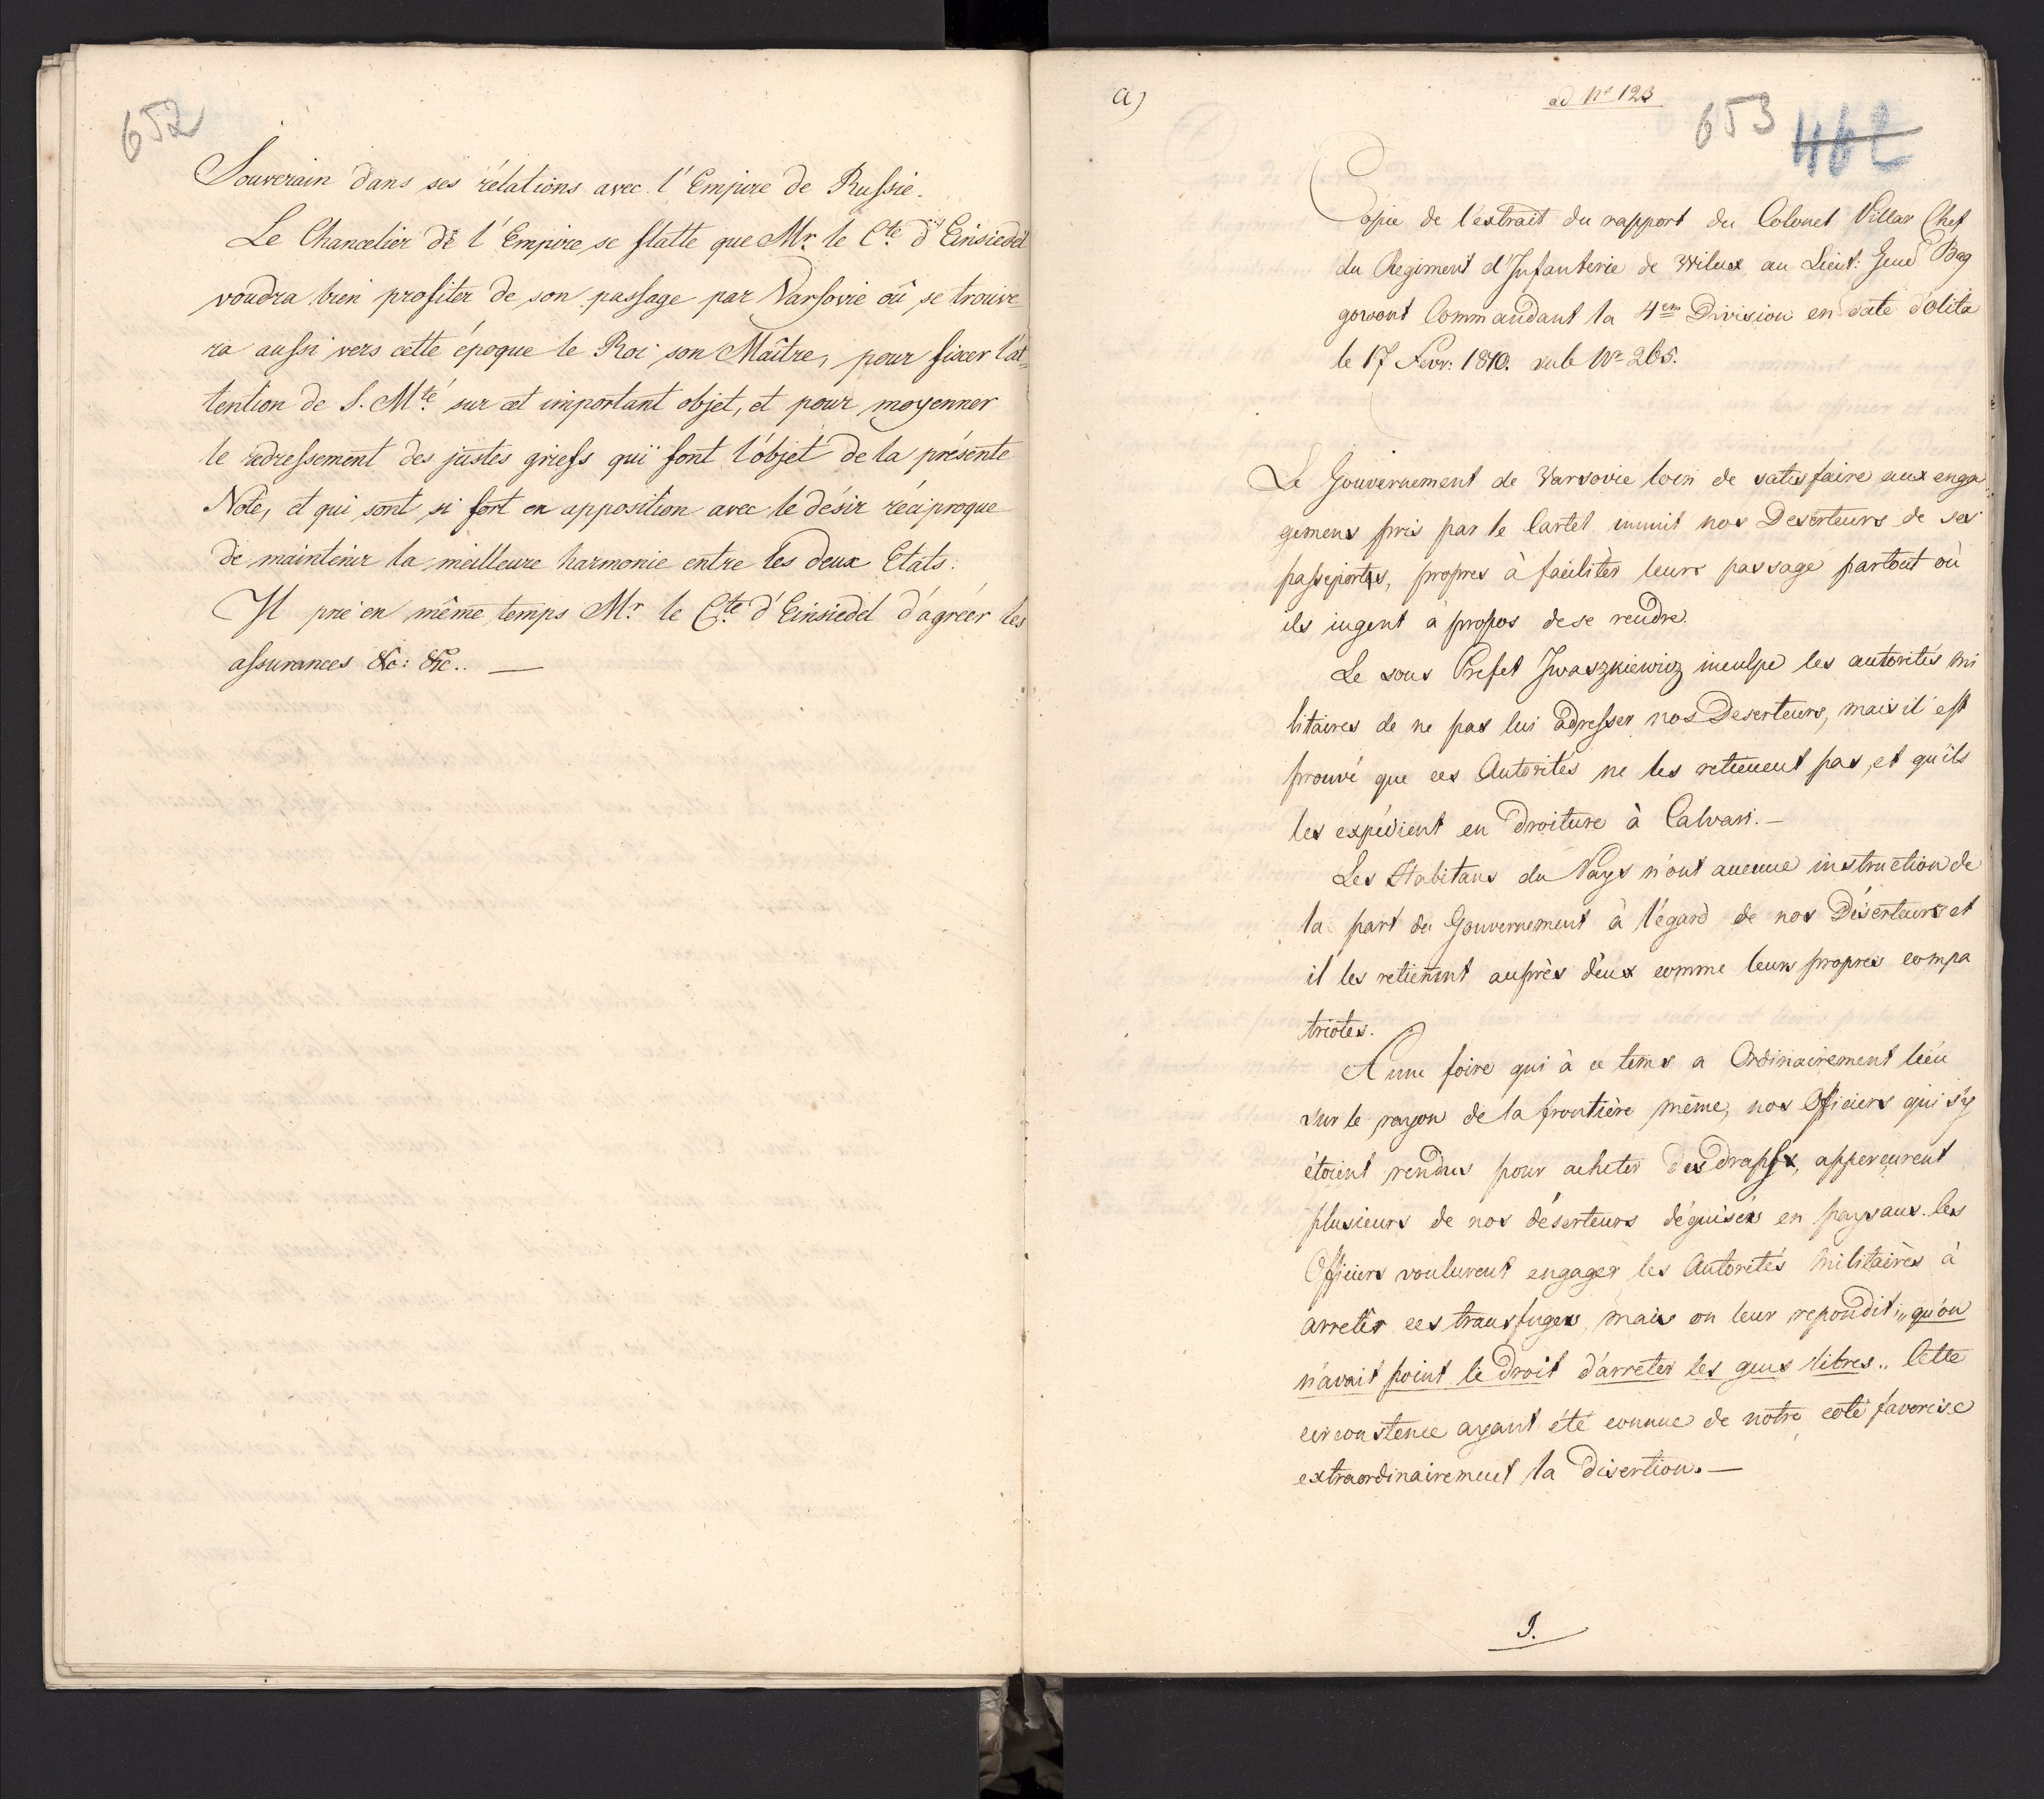 652
Souverain dans ses rélations avec l'Empire de Russie.
Le Chancelier de l'Empire se flatte que Mr. le Cte. d'Einsiedel
voudra bien profiter de son passage par Varsovie où se trouve-
ra aussi vers cette époque le Roi son Maître, pour fixer l'at-
tention de S. Mté. sur cet important objet, et pour moyenner
le redressement des justes griefs qui font l'objet de la présente
Note, et qui sont si fort en apposition avec le désir réciproque
de maintenir la meilleure harmonie entre les deux Etats.
Il prie en même temps Mr. le Cte. d'Einsiedel d'agréer les
assurances &c: &c.. —
a)
ad No 123
653
462
Copie de l'extrait du rapport du Colonel Villar Chef
du Regiment d'Infanterie de Wilna au Lieut: Genel Bag
gowout Commandant la 4em Division en date d'Olita
le 17 Fevr: 1810. sub No 265.
Le Gouvernement de Varsovie loin de satisfaire aux enga
gemens pris par le Cartel munit nos Deserteurs de ses
passeports, propres à faciliter leurs passage partout où
ils iugent à propos de se rendre.
Le sous Prefet Iwaszkiewicz inculpe les autorités mi
litaires de ne pas lui adresser nos Deserteurs, mais il est
prouvé que ces Autorités ne les retienent pas, et qu'ils
les expédient en droiture à Calvari. —
Les Habitans du Pays n'ont aucune instruction de
la part du Gouvernement à l'égard de nos Déserteurs et
il les retienent auprès d'eux comme leurs propres compa
triotes.
A une foire qui à ce tems a Ordinairement lieu
sur le rayon de la frontière même, nos Officiers qui s'y
étoient rendus pour acheter des draps, apperçurent
plusieurs de nos déserteurs déguisés en paysans. les
Officiers voulurent engager les Autorités Militaires à
arreter ces transfuges, mais on leur repondit: „qu'on
n'avait point le droit d'arreter les gens libres„ Cette
circonstence ayant été connue de notre coté favorise
extraordinairement la disertion. —
I.